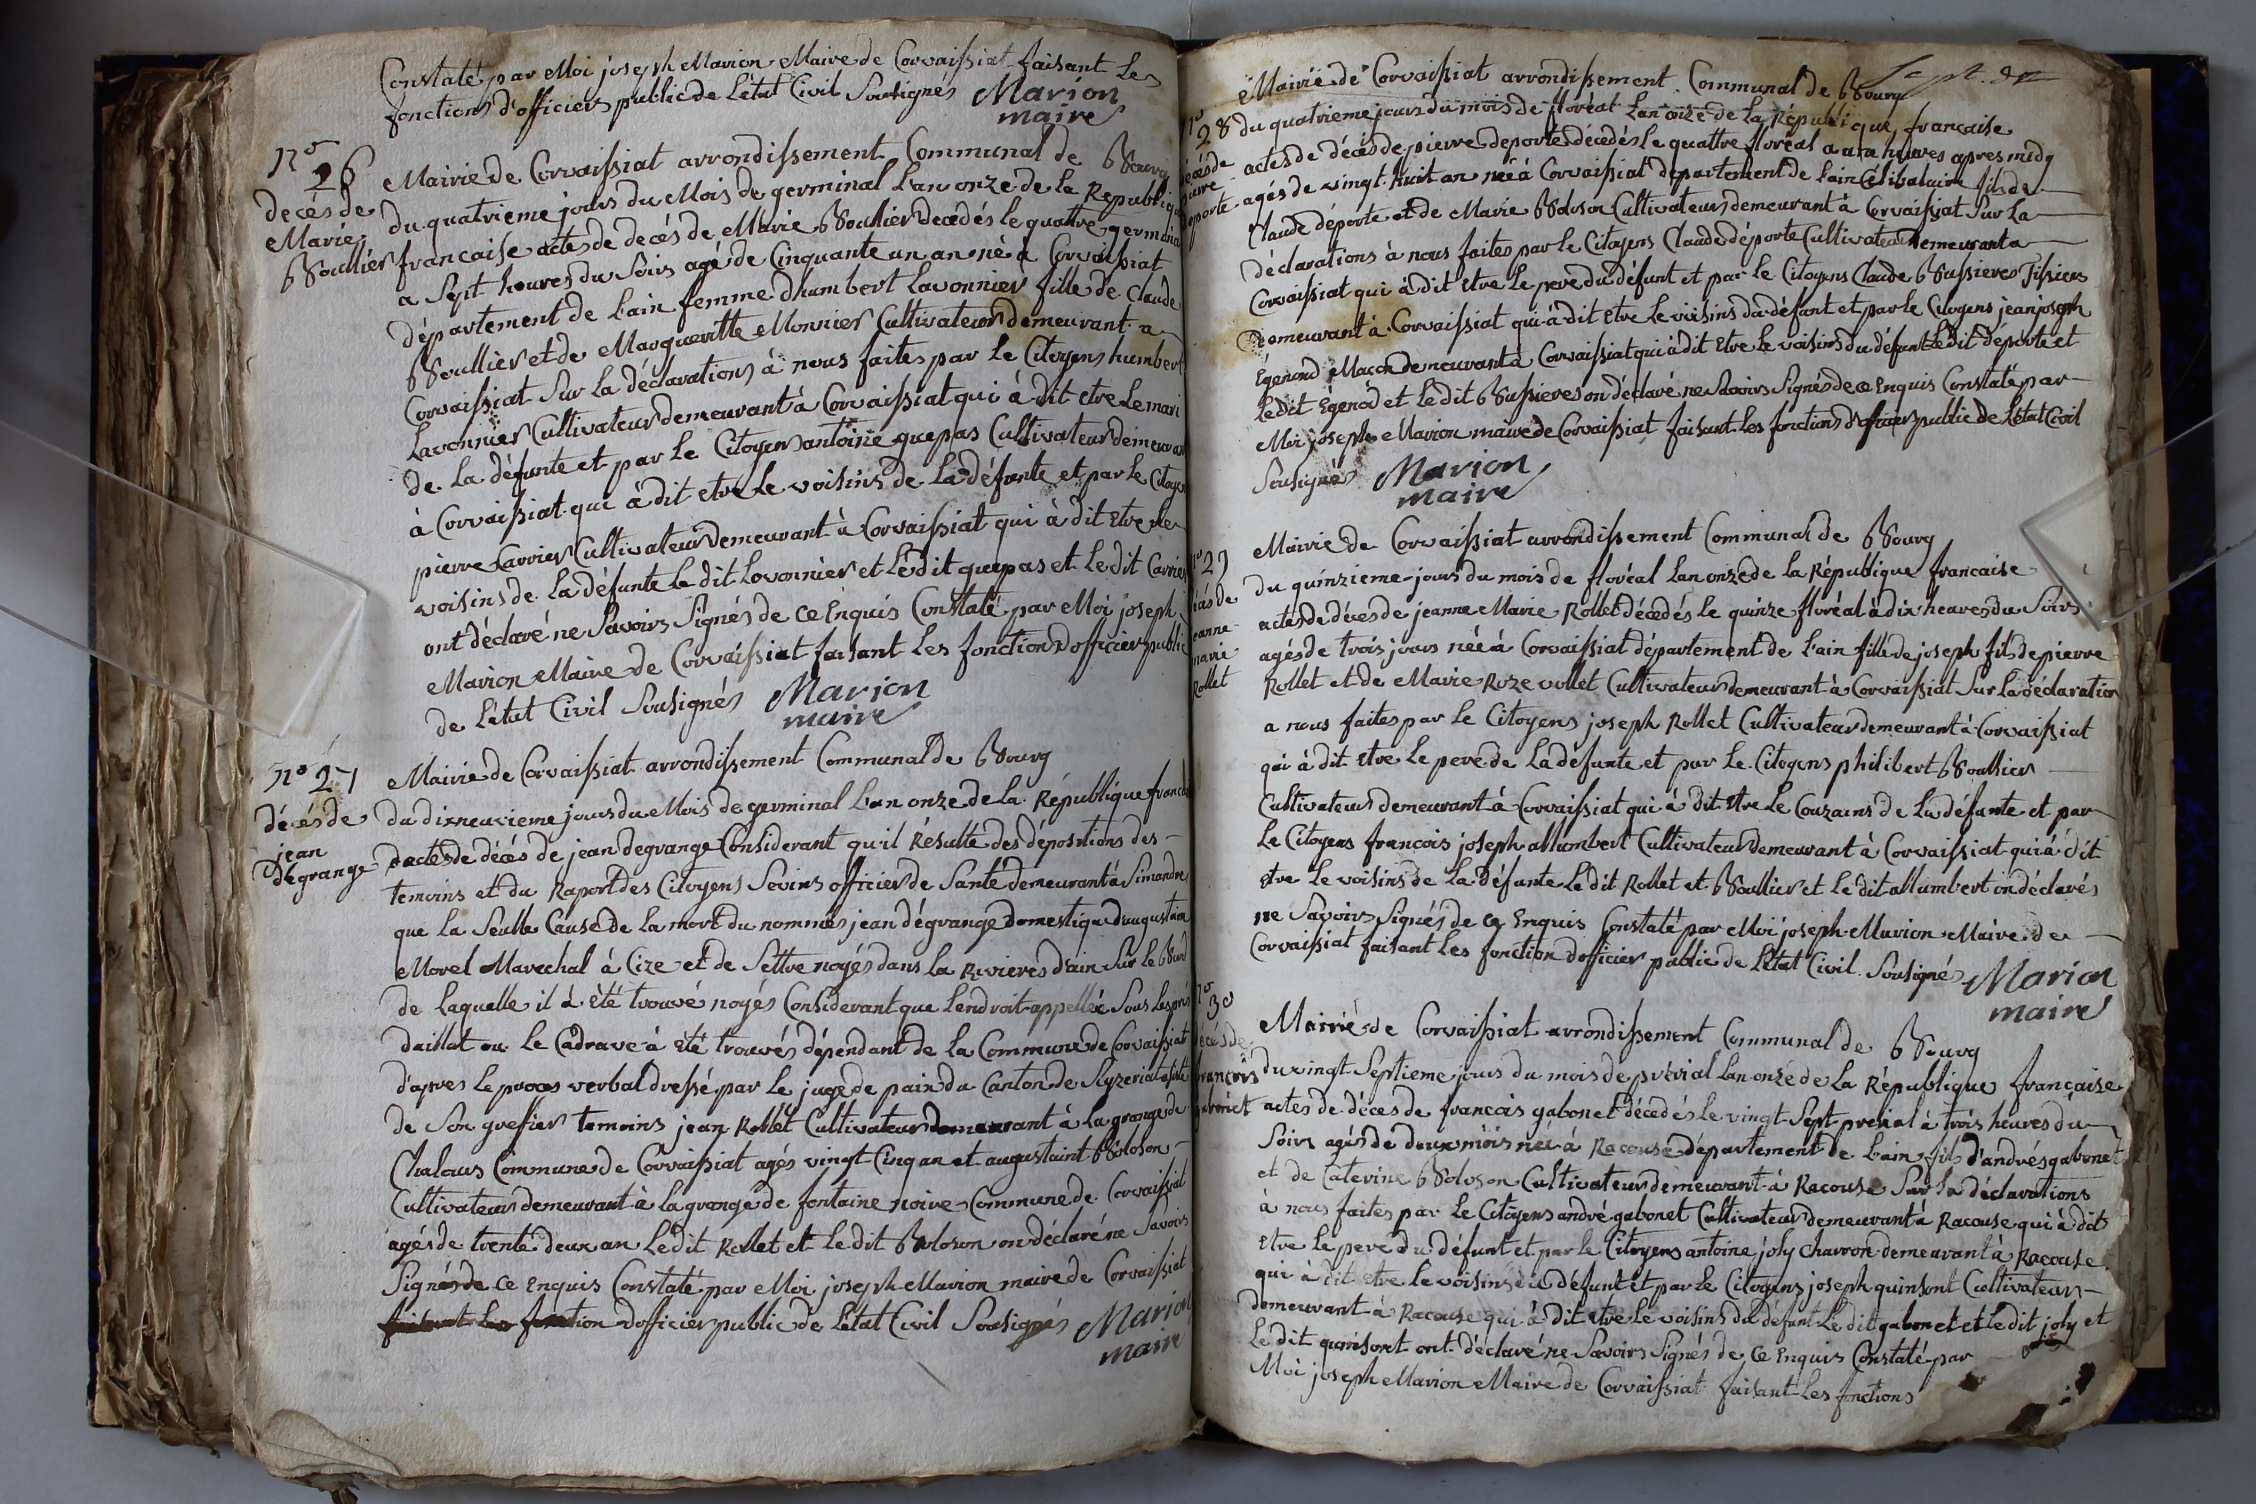 Constaté par Moi joseph Marion Maire de Corvaissiat faisant les
fonctions d'officiers public de Létat Civil Sousignés Marion
maire
No 26
decés de
Marie
Boullier
Mairie de Corvaissiat arrondissement Communal de Bourg
du quatrieme jours du Mois de germinal L'an onze de la Republiq
francaise actes de decés de Marie Boullier decedés le quattre germinal
a Sept heures du Soirs agé de Cinquante un an né a Corvaissiat
département de L'ain femme dhumbert Lavonnier fille de Claude
Boullier et de Margueritte Monnier Cultivateurs demeurant a
Corvaissiat Sur la déclarations à nous faites par le Citoyens humbert
Lavonnier Cultivateur demeurant à Corvaissiat qui à dit etre Le mari
de La défunte et par Le Citoyens antoine guepas Cultivateur demeuran
à Corvaissiat qui à dit etre Le voisins de La défunte et par le Citoyen
pierre Carrier Cultivateurs demeurant à Corvaissiat qui à dit Etre Le
voisins de La défunte Le dit Lovonnier et Lédit guepas et Le dit Carrier
ont déclaré ne Savoirs Signés de ce Enquis Constaté par Moi joseph
Marion Maire de Corvaissiat faisant Les fonctions dofficiers public
de Létat Civil Sousignés Marion
maire
No 27
décés de
jean
dégrange
Mairie de Corvaissiat arrondissement Communal de Bourg
du dixneuvieme jours du Mois de germinal L'an onze de La République francai
actes de décés de jean degrange Considerant qu'il Résulte des dépositions des
temoins et du Raport des Citoyens Sovins officier de Santé demeurant à Simandre
que la Seulle Cause de la mort du nommés jean dégrange domestique daugustain
Morel Marechal à Cize et de Settre noyés dans la Rivieres dain Sur le Bord
de laquelle il à été trouvé noyés Considerant que Lendroit appellée Sous Les prés
daillot ou Le Cadavre à été trouvés dépendant de la Commune de Corvaissiat
d'apres le proces verbal dressé par le juge de paix du Canton de
de Son grefier temoins jean Rollet Cultivateurs demeurant à La grange de
Chalours Commune de Corvaissiat agés vingt Cinq an et augustaint Boloson
Cultivateurs demeurant à la grange de fontaine noire Commune de Corvaissiat
agés de trente deux an Le dit Rollet et Le dit Boloson on déclaré ne Savoirs
Signés de Ce Enquis Constaté par Moi joseph Marion maire de Corvaissiat
faisant Les fonction dofficier public de Létat Civil Sousignés Marion
maire
28
décés de
pierre
déporte
Mairie de Corvaissiat arrondissement Communal de Bourg
du quatrieme jours du mois de floréal Lan onze de La République francaise
actes de décés de pierre deporte décédés le quattre floréal a heures apres midy
agés de vingt huit an né à Corvaissiat departement de Lain Célibataire fils de
Claude déporte et de Marie Boloson Cultivateurs demeurant à Corvaissiat Sur La
déclarations à nous faites par le Citoyens Claude déporte Cultivateur demeurant a
Corvaissiat qui à dit etre Le pere du défunt et par Le Citoyens Claude Bussieres Tissiers
demeurant à Corvaissiat qui à dit etre Le voisins du défunt et par le Citoyens jean joseph
Egénod Macon demeurant à Corvaissiat qui à dit Etre Le voisins du défunt Ledit déporte et
Le dit Egenod et Le dit Bussieres on déclaré ne Savoirs Signés de ce Enquis Constaté par
Moi joseph Marion maire de Corvaissiat faisant Les fonctions dofficier public de Létat Civil
Sousignés Marion
maire
No 29
décés de
jeanne
marie
Rollet
Mairie de Corvaissiat arrondissement Communal de Bourg
du quinzieme jours du mois de floréal Lan onze de La République francaise
actes de déces de jeanne Marie Rollet décédés le quinze floréal à dix heures du Soirs
agés de trois jours néé à Corvaissiat département de L'ain fille de joseph fils de pierre
Rollet et de Marie Roze vollet Cultivateurs demeurant à Corvaissiat Sur La déclaration
a nous faites par Le Citoyens joseph Rollet Cultivateur demeurant à Corvaissiat
qui à dit Etre Le pere de La defunte et par Le Citoyens philibert Boullier
Cultivateurs demeurant à Corvaissiat qui à dit Etre Le Couzains de La défunte et par
Le Citoyens francois joseph allumbert Cultivateur demeurant à Corvaissiat qui à dit
Etre Le voisins de La défunte Le dit Rollet et Boullier et Le dit allumbert on déclarés
ne Savoirs Signés de Ce Enquis Constaté par Moi joseph Marion Maire de
Corvaissiat faisant Les fonction dofficier public de Létat Civil Sousigné Marion
maire
No 30
décés de
françois
gabonet
Mairie de Corvaissiat arrondissement Communal de Bourg
du vingt Septieme jours du mois de prérial Lan onze de La République française
actes de déces de francois gabonet décédés le vingt Sept prérial à trois heures du
Soirs agés de deux mois néé à Racouse département de Lain fils d'andrés gabonet
et de Caterine Boloson Cultivateurs demeurant à Racouse Sur La déclarations
à nous faites par Le Citoyens andré gabonet Cultivateur demeurant à Racouse qui à dit
Etre Le pere du défunt et par le Citoyens antoine joly charron demeurant à Racouse
qui à dit Etre Le voisins du défunt et par Le Citoyens joseph quinsont Cultivateurs
demeurant à Racouse qui à dit etre Le voisins du défunt Le dit gabonet et Le dit joly et
Le dit quinsont ont déclaré ne Savoirs Signés de Ce Enquis Constaté par
Moi joseph Marion Maire de Corvaissiat faisant Les fonctions